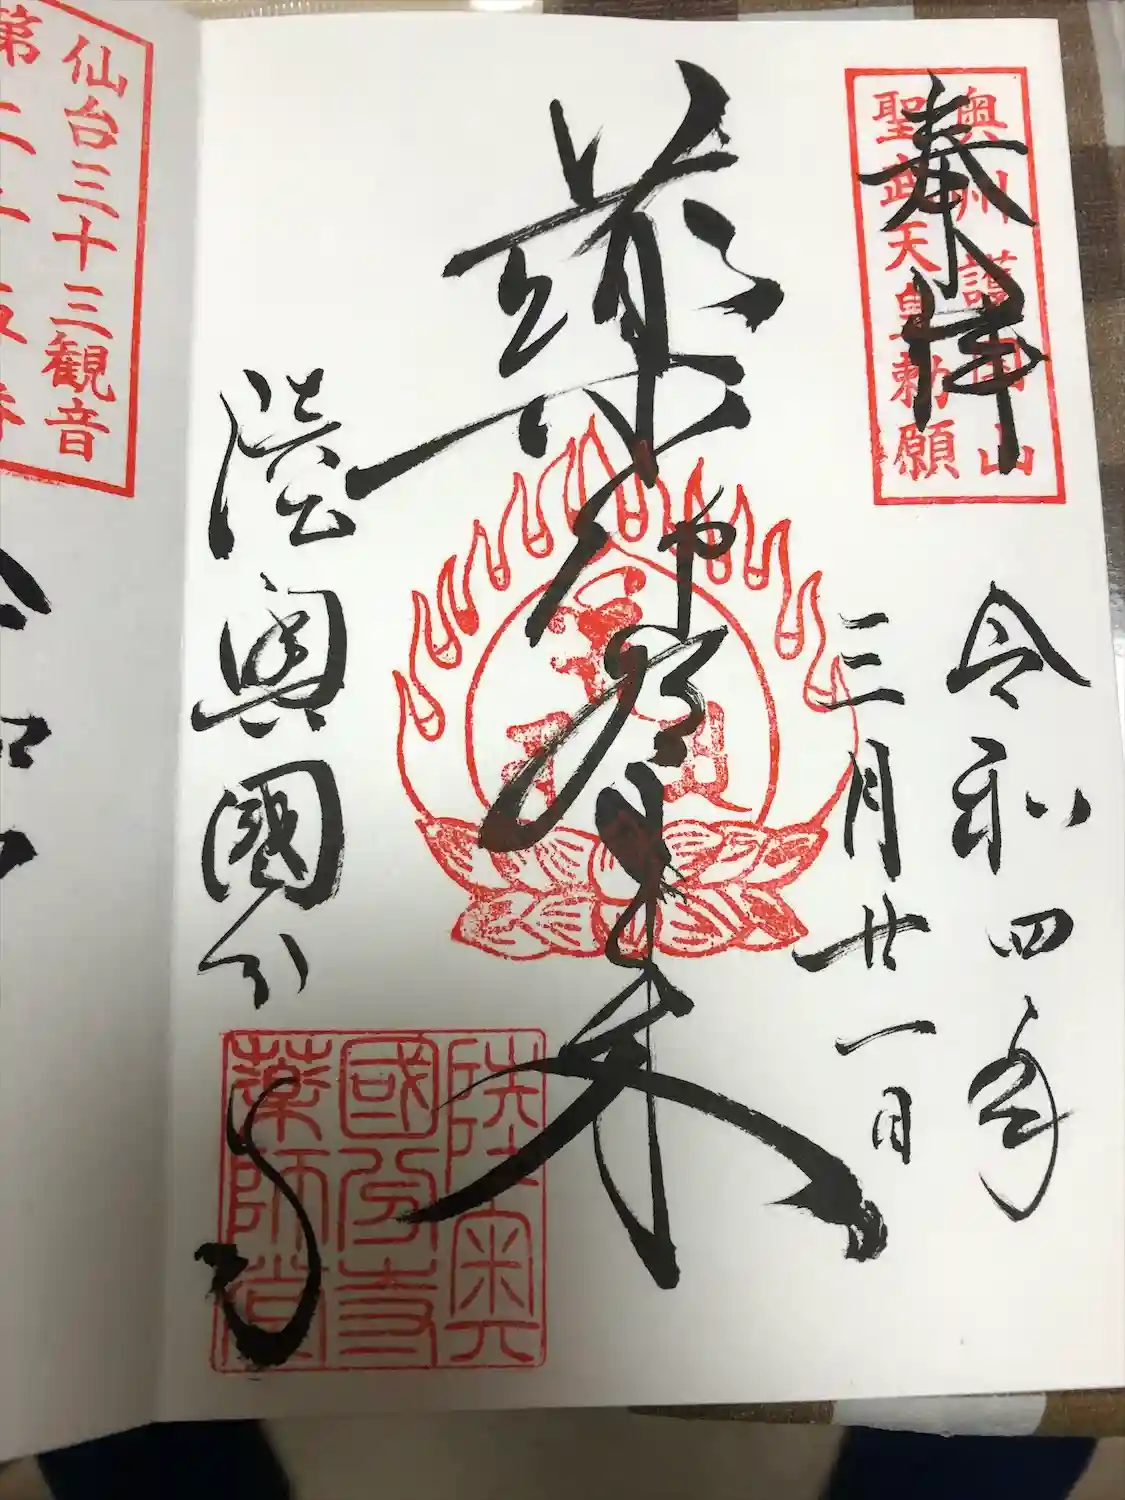 奉拝
奥州護国山
聖武天皇勅願
令和四年
三月廿一日
薬師如来
陸奥國分寺
陸奥
國分寺
薬師堂
仙台三十三観音
第二十五番
令和